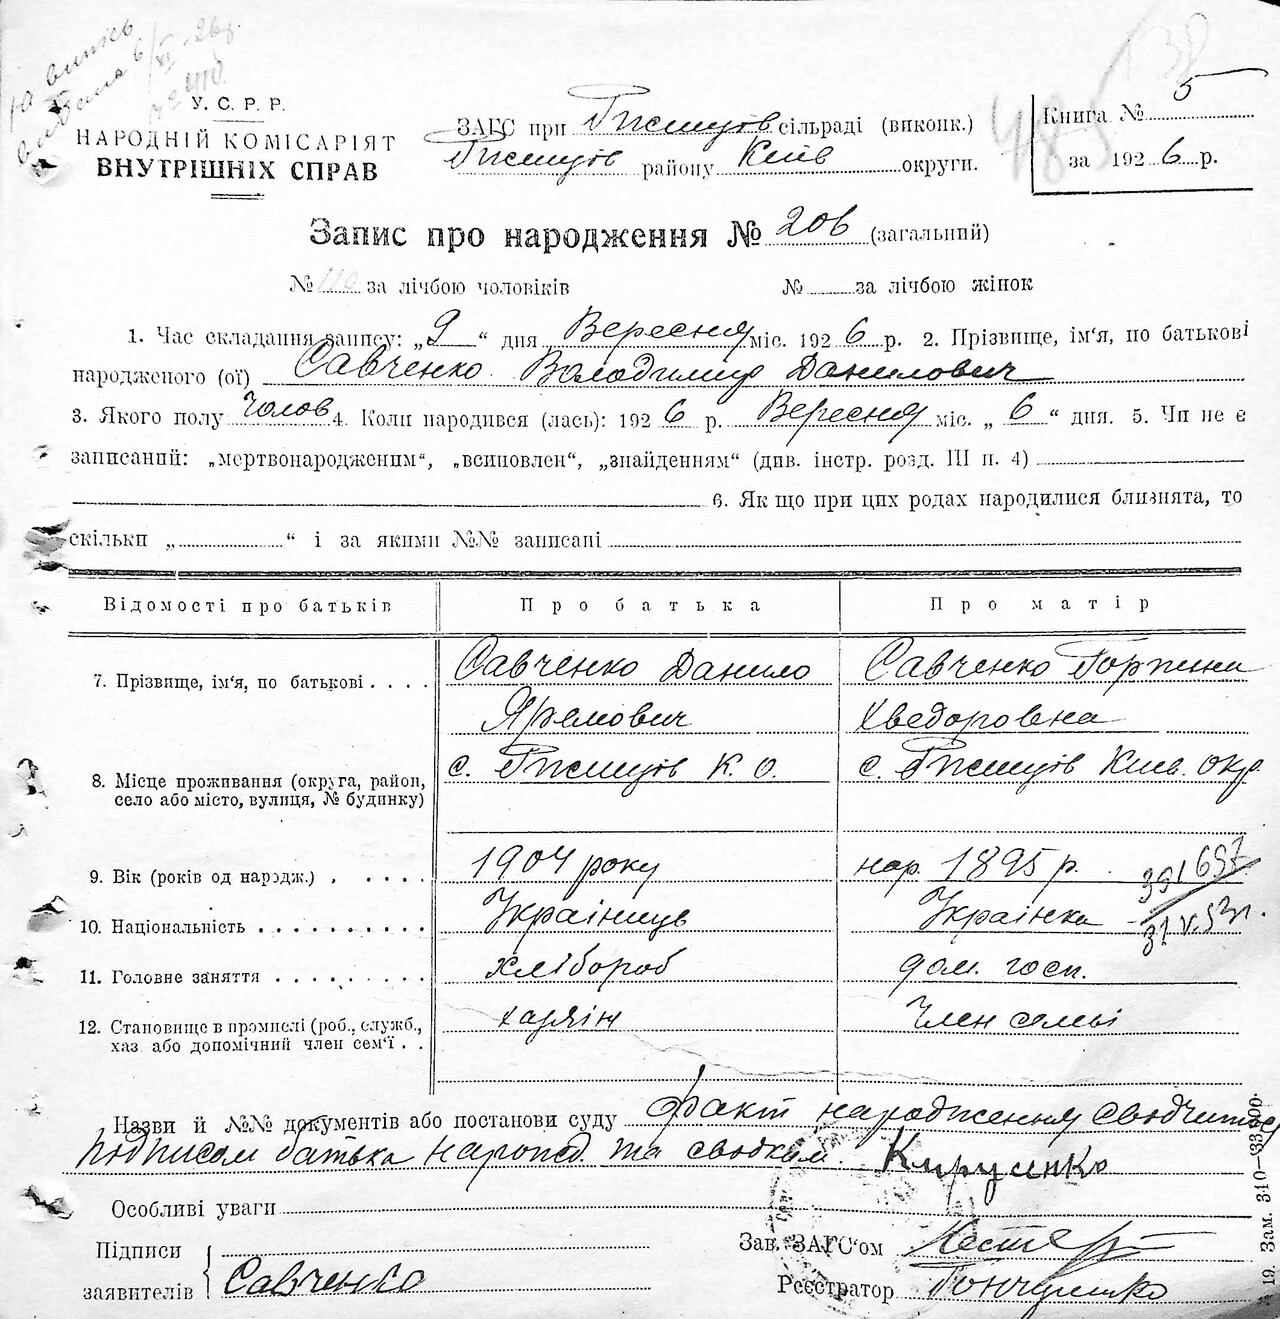 Ю випись
видана 6/XI-26р.
№ 410
У. С. Р. Р.
НАРОДНІЙ КОМІСАРІЯТ
ВНУТРІШНІХ СПРАВ
ЗАГС при Ржищів сільраді (виконк.)
Ржищів району Київ округи.
485
Книга № 5
за 1926 р.
Запис про народження № 206 (загальний)
№ 110 за лічбою чоловіків № за лічбою жінок
1. Час складання запису: „9“ дня Вересня міс. 1926 р. 2. Прізвище, ім‘я, по батькові
народженого (ої) Савченко Володимир Данилович
3. Якого полу Чолов 4. Коли народився (лась): 1926 р. Вересня міс. „6“ дня. 5. Чи не є
записаний: „мертвонародженим“, „всиновлен“, „знайденням“ (див. інстр. розд. III п. 4)
6. Як що при цих родах народилися близнята, то
скільки „ “ і за якими №№ записані
Відомості про батьків Про батька Про матір
7. Прізвище, ім‘я, по батькові Савченко Данило Савченко Горпина
Яремович Хведоровна
8. Місце проживання (округа, район, с. Ржищів К. О. с. Ржищів Київ. окр.
село або місто, вулиця, № будинку)
9. Вік (років од народж.) 1904 року нар. 1895 р. 391697
10. Національність Українець Українка 31 V.53г.
11. Головне заняття хлібороб дом. госп.
12. Становище в промислі (роб., служб., хазяін Член семьі
хаз. або допомічний член сем‘ї
Назви й №№ документів або постанови суду Факт народження
підписом батька та свідком. Кируенко
Особливі уваги
Підписи
заявителів Савченко
Зав. ЗАГС‘ом
Реєстратор
19. Зам. 340—33300